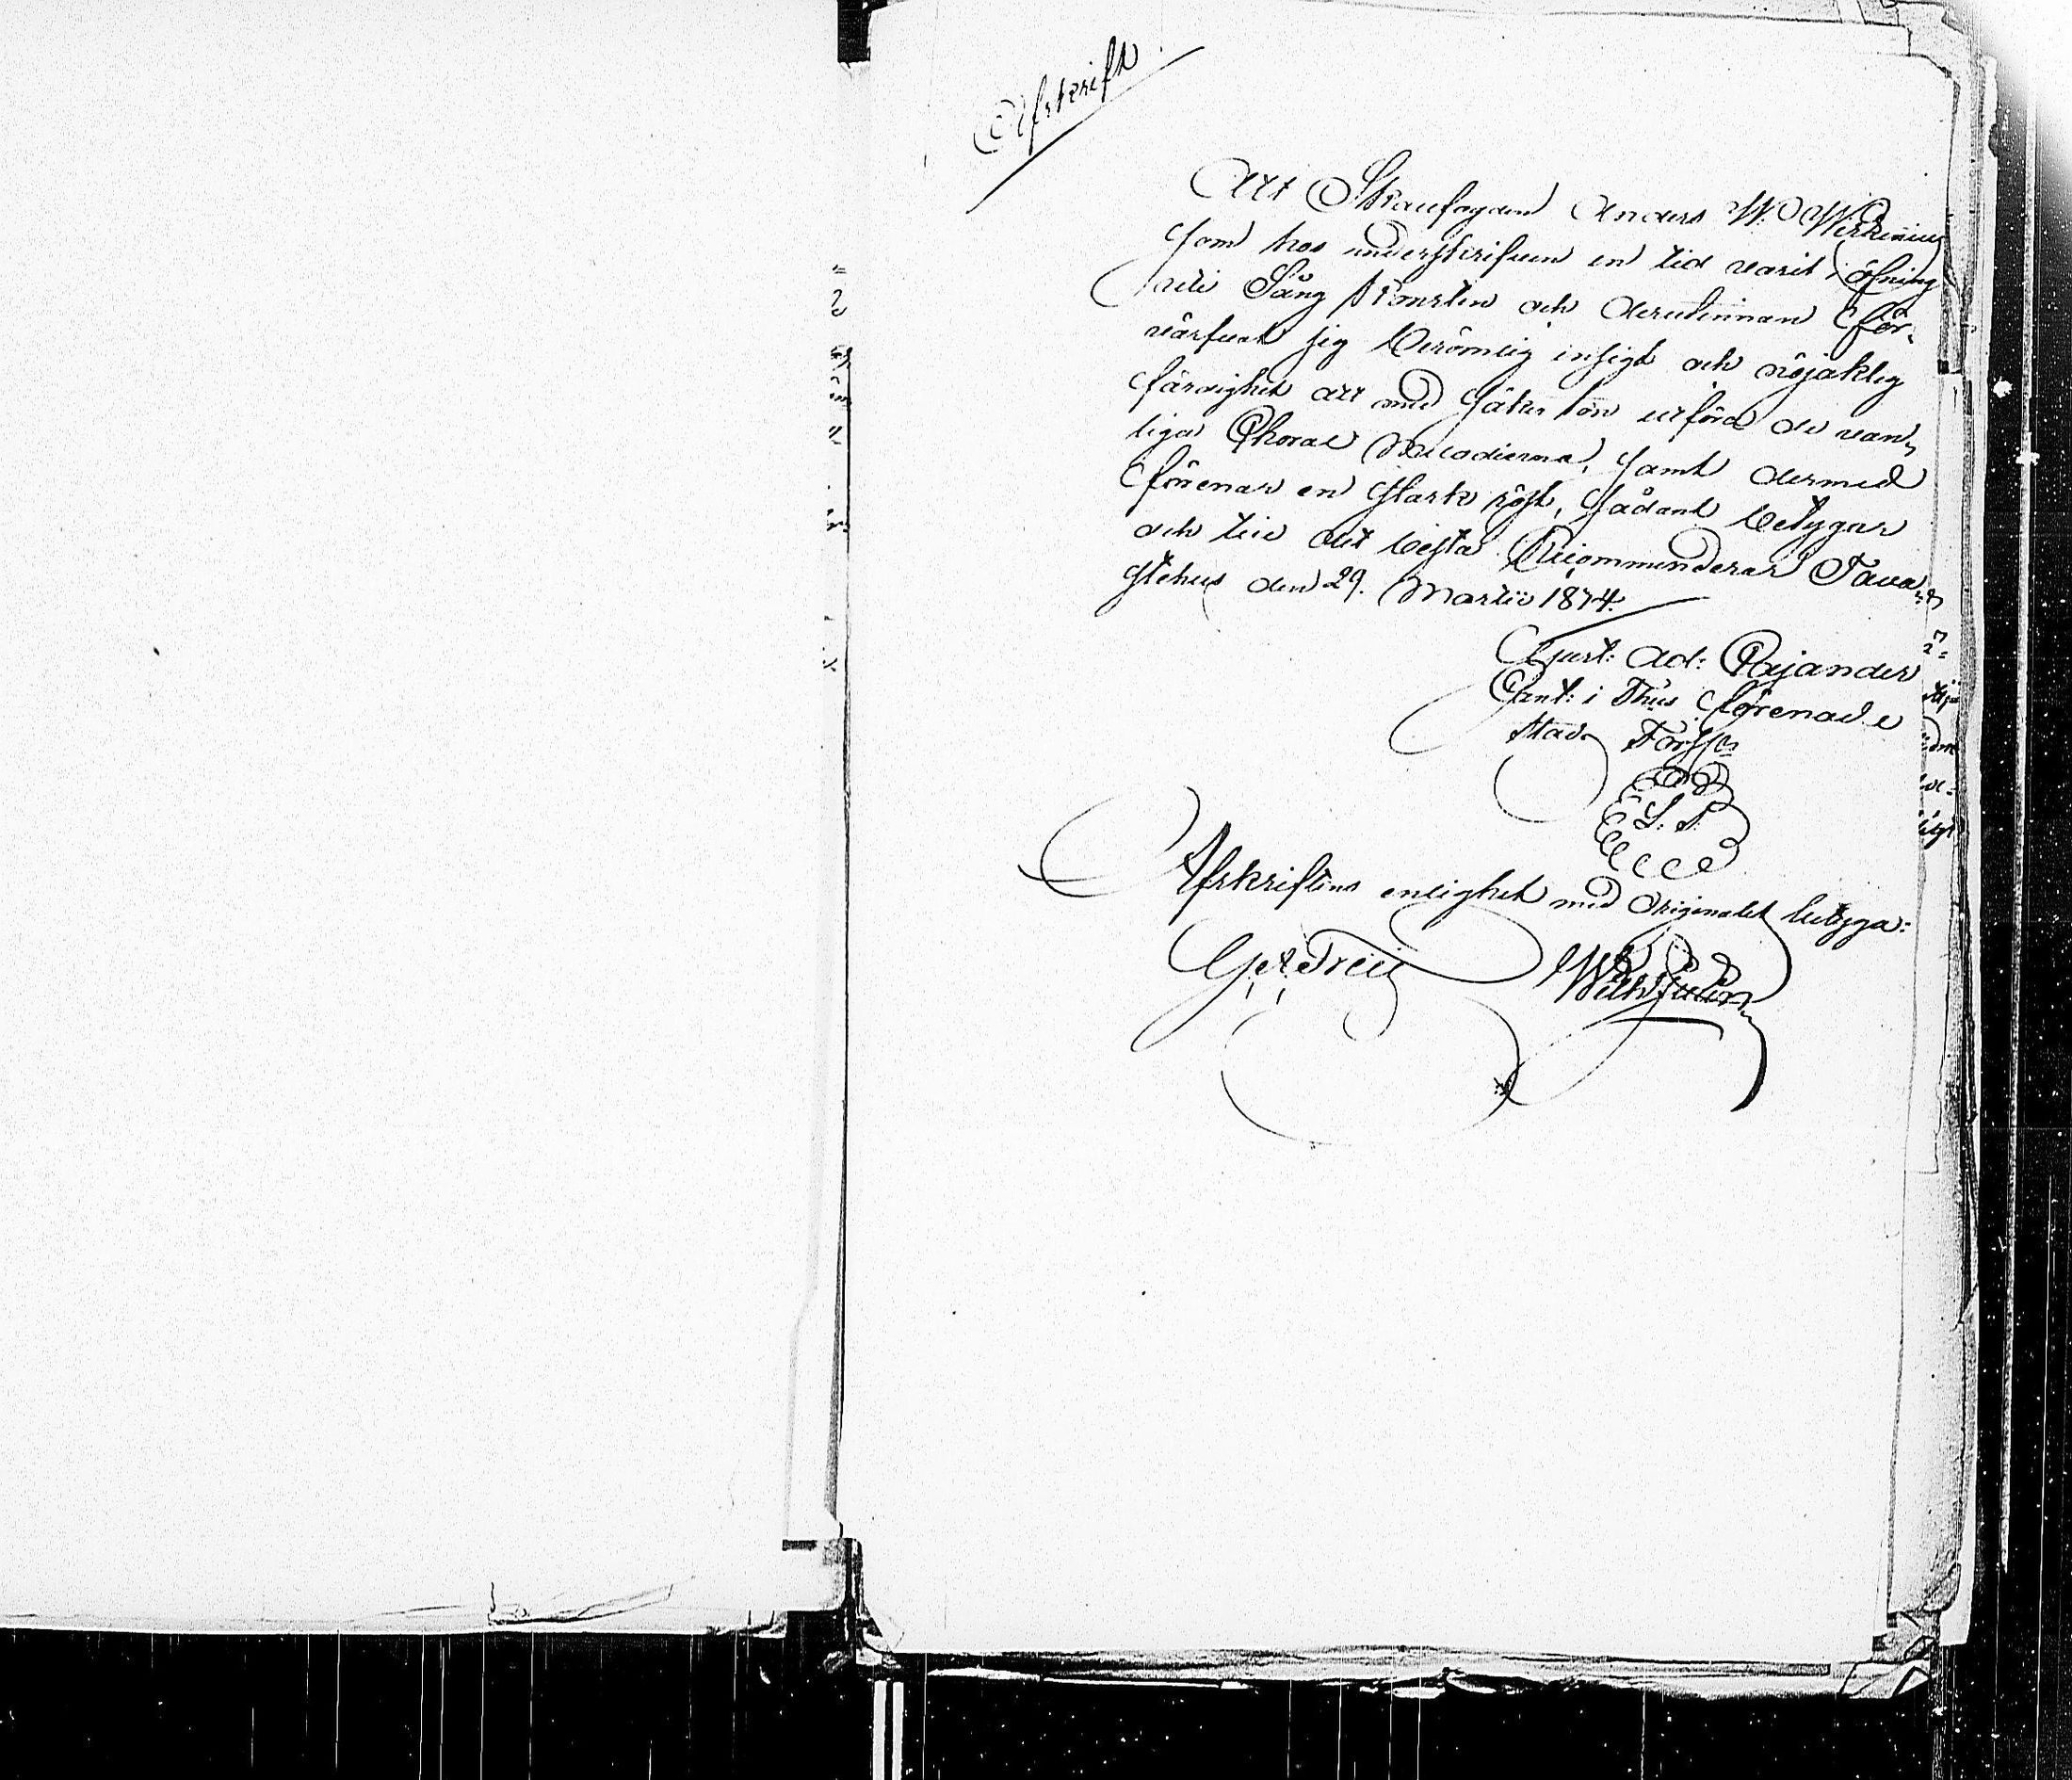 Afskrift
Att Skaufogden Anders W. Wirzenius
som hos underskrifven en tid varit, öfning
uti Sång konsten och derutinnan för-
värfvat sig berömlig insigt och nöjaktig
färdighet att med säker ton utföra de van-
liga Choral Melodierna, samt dermed
förenar en stark röst, sådant betygar
och till det bästa Recommenderar Tava-
stehus den 29. Martii 1874.
Gust: Ad: Rajander
Cant: i Thus förenade
Stads Förs:
L: S:
Afskriftens enlighet med Originalet betyga: